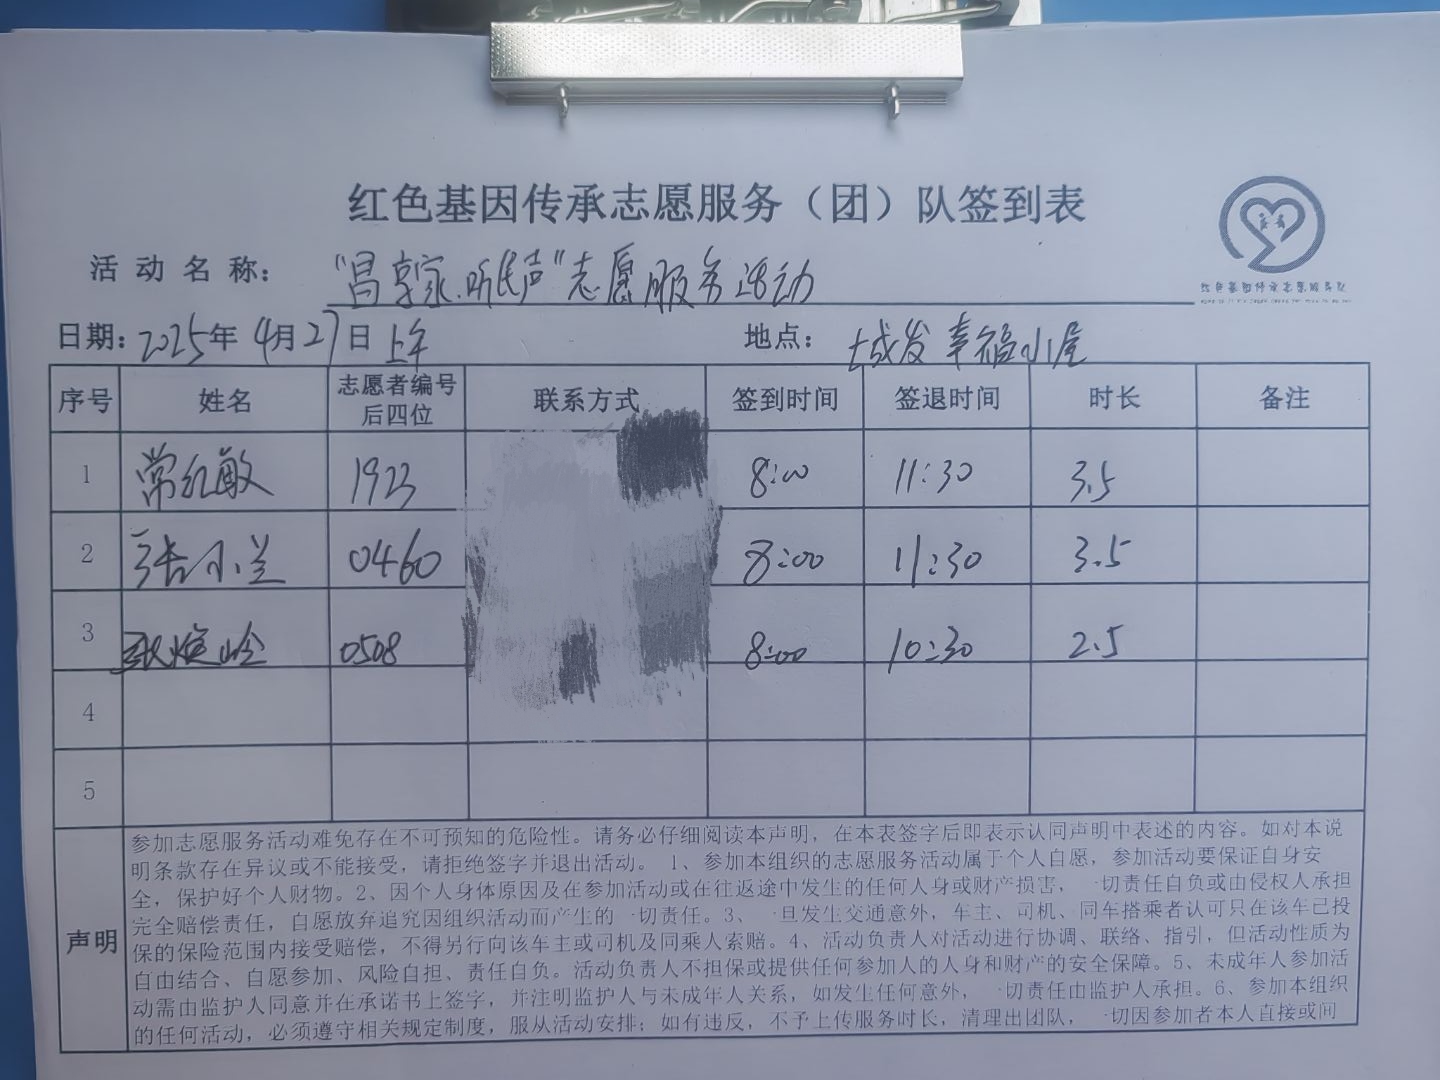 红色基因传承志愿服务（团）队签到表
活动名称： “昌享家.听民声”志愿服务活动
红色基因传承志愿服务队
日期：2025年4月27日上午 地点： 城发幸福小屋
序号 姓名 志愿者编号后四位 联系方式 签到时间 签退时间 时长 备注
1 常红敏 1923 8:00 11:30 3.5
2 张小兰 0460 8:00 11:30 3.5
3 耿焕岭 0508 8:00 10:30 2.5
4
5
声明
参加志愿服务活动难免存在不可预知的危险性。请务必仔细阅读本声明，在本表签字后即表示认同声明中表述的内容。如对本说
明条款存在异议或不能接受，请拒绝签字并退出活动。 1、参加本组织的志愿服务活动属于个人自愿，参加活动要保证自身安
全，保护好个人财物。2、因个人身体原因及在参加活动或在往返途中发生的任何人身或财产损害，一切责任自负或由侵权人承担
完全赔偿责任，自愿放弃追究因组织活动而产生的一切责任。3、一旦发生交通意外，车主、司机、同车搭乘者认可只在该车已投
保的保险范围内接受赔偿，不得另行向该车主或司机及同乘人索赔。4、活动负责人对活动进行协调、联络、指引，但活动性质为
自由结合、自愿参加、风险自担、责任自负。活动负责人不担保或提供任何参加人的人身和财产的安全保障。5、未成年人参加活
动需由监护人同意并在承诺书上签字，并注明监护人与未成年人关系，如发生任何意外，一切责任由监护人承担。6、参加本组织
的任何活动，必须遵守相关规定制度，服从活动安排；如有违反，不予上传服务时长，清理出团队，一切因参加者本人直接或间